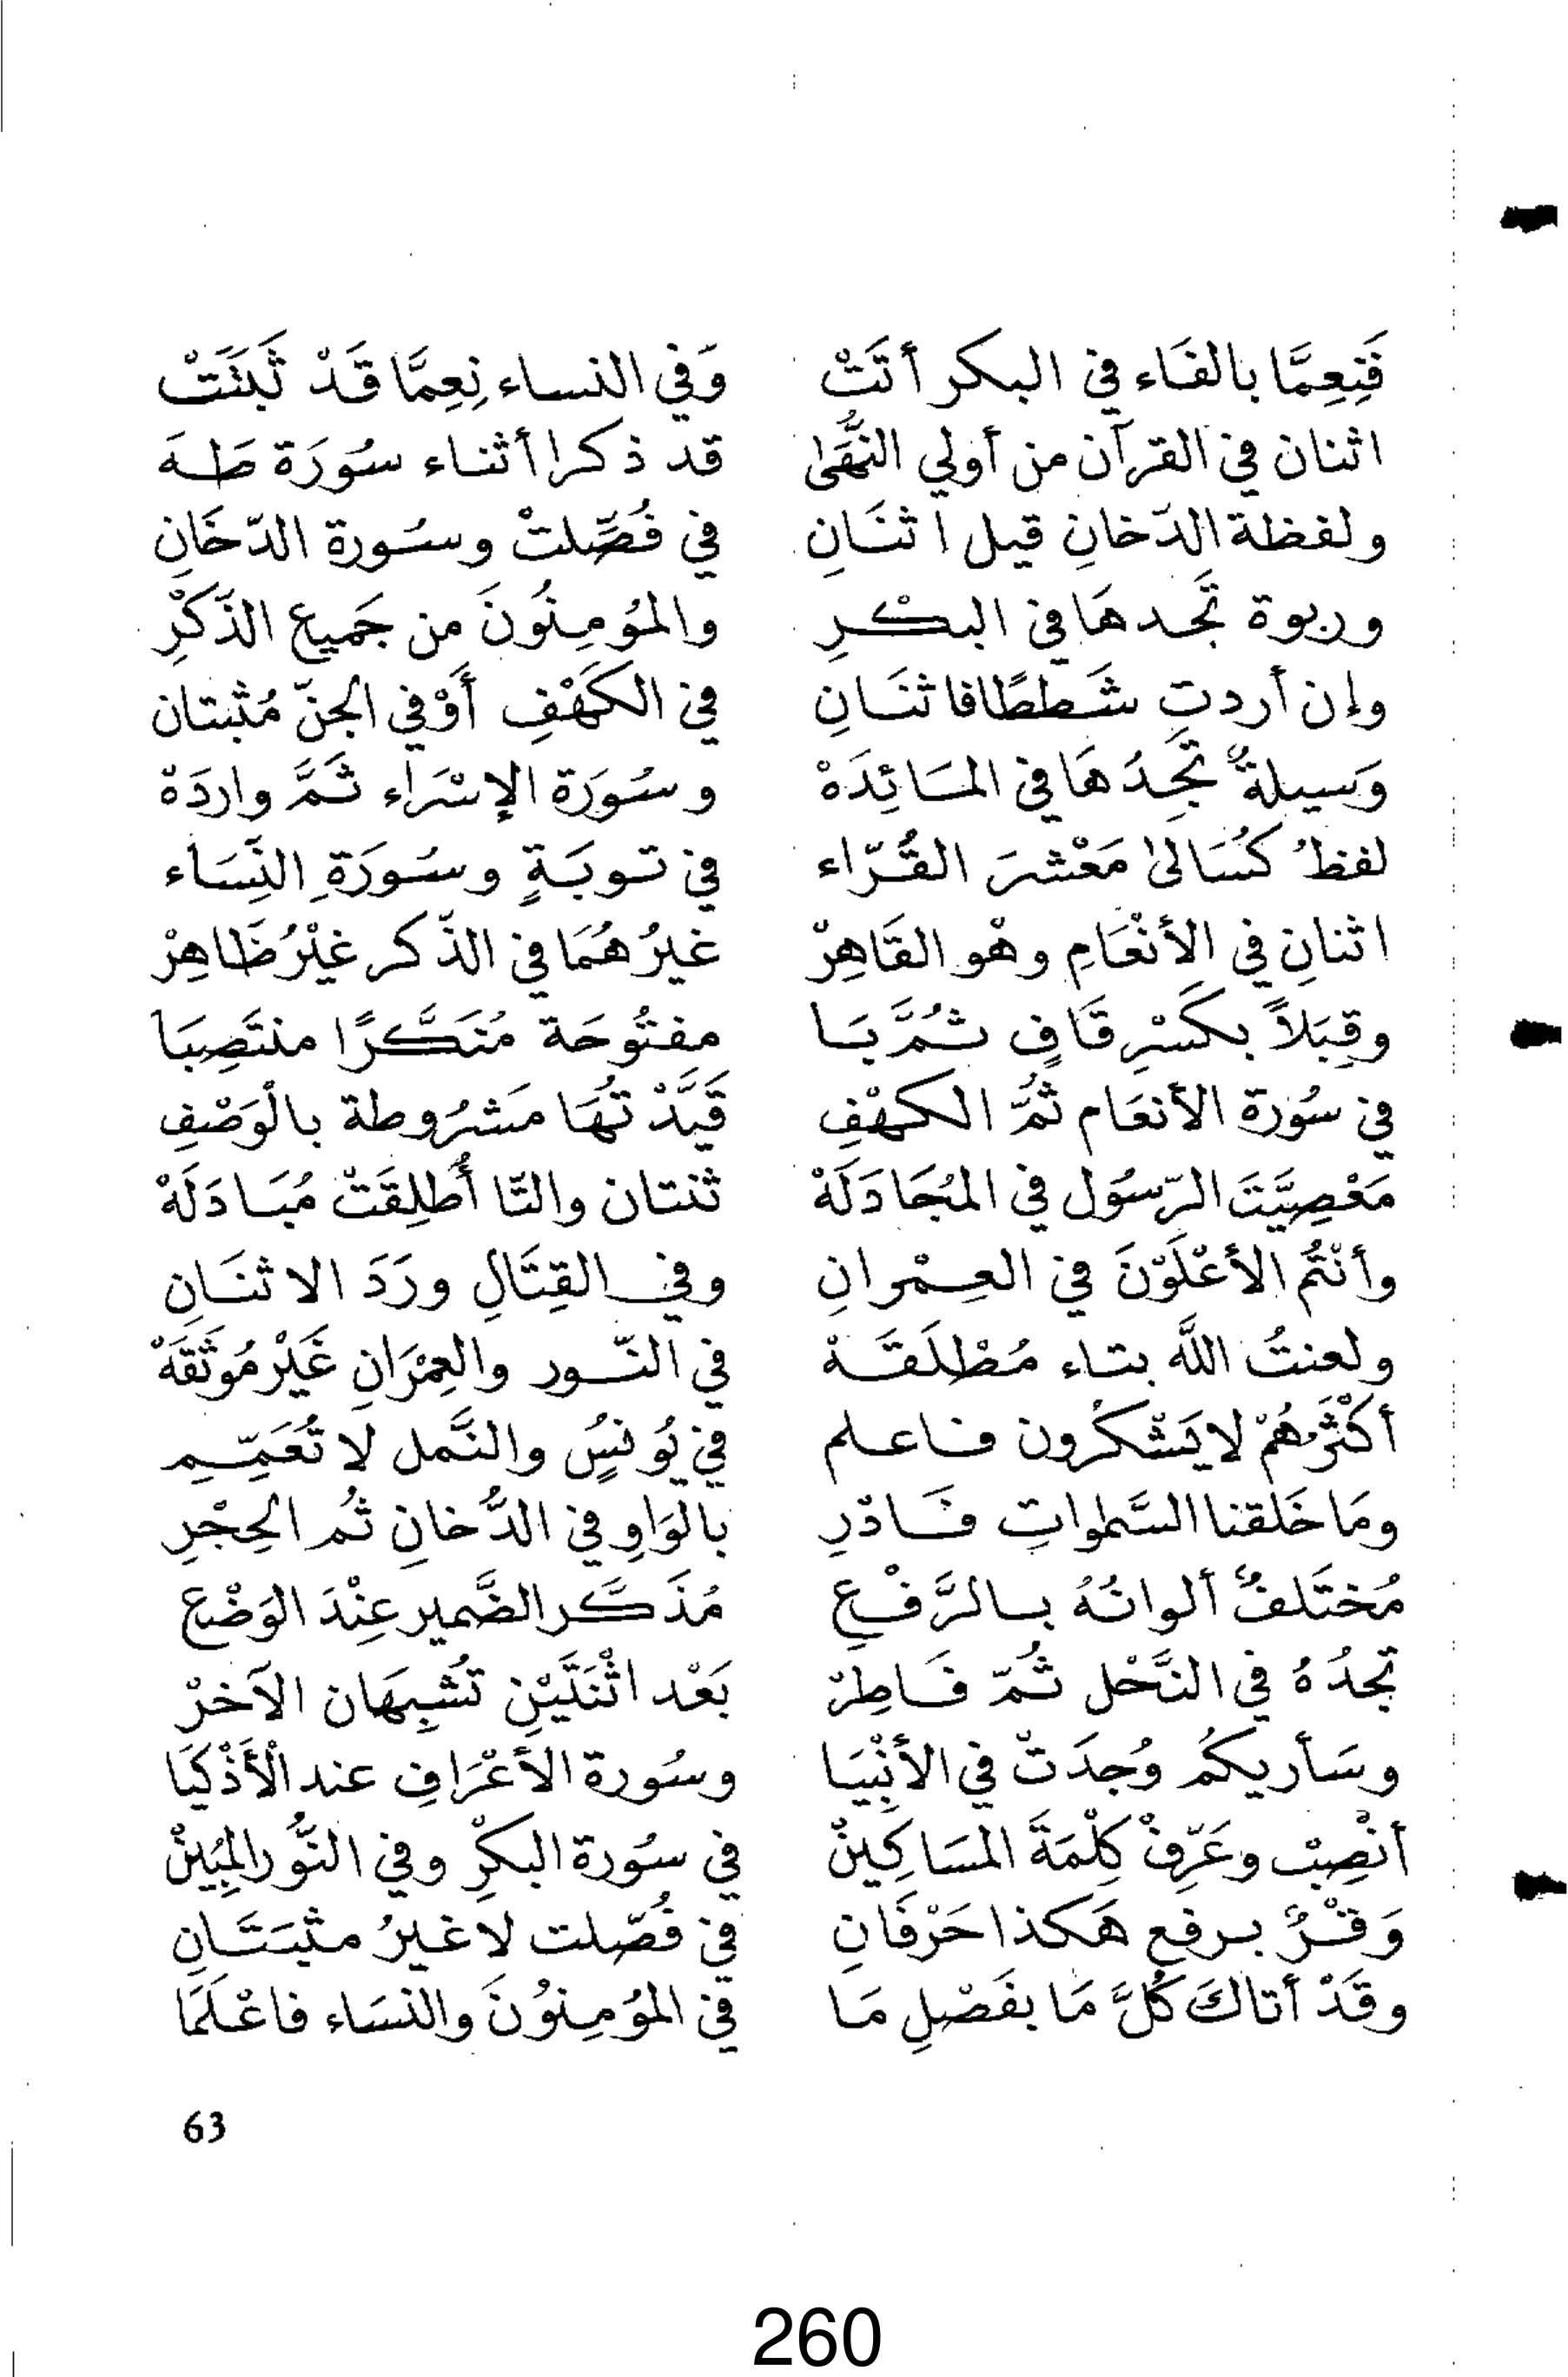 فَنِعِمَّا بالفَاء في البكر أتَتْ وَفي النساء نِعِمَّا قَدْ ثَبَتَتْ
اثنان في القرآن من أولي النُّهَىٰ قد ذكرا أثناء سُورَة طَهَ
ولفظة الدّخانِ قيل اثنَانِ في فُصِّلتْ وسُورة الدّخَانِ
وربوة تَجدهَا في البكْرِ والمؤمِنُونَ من جَميع الذّكْرِ
وإن أردتِ شَططًا فاثنَانِ في الكَهْفِ أَوْ في الجنّ مُثبتان
وَسيلةٌ تَجِدُهَا في المَائِدَهْ وسُورَة الإسْرَاء ثَمَّ وارِدَهْ
لفظُ كُسَالىٰ مَعْشرَ القُرّاء في توبَةٍ وسُورَةِ النِّسَاء
اثنانِ في الأنْعَامِ وهْو القَاهِرْ غيرُهُمَا في الذّكر غيْرُ ظَاهِرْ
وقِبَلاً بكَسْرِ قَافٍ ثُمَّ بَا مفتُوحَة مُنَكَّرًا منتَصِبَا
في سُورَة الأنعَام ثُمَّ الكهْفِ قَيَّدْتُهَا مَشرُوطة بالْوَصْفِ
مَعْصِيَّتَ الرّسُول في المُجَادَلَهْ ثنتان والتّا أُطلِقَتْ مُبَادَلَهْ
وأنْتُم الأعْلَوْنَ في العِمْرانِ وفي القِتَالِ ورَدَ الاثنَانِ
ولعنتُ اللَّه بتاء مُطْلَقَهْ في النّور والعِمْرَانِ غَيْر مُوثَقَهْ
أكْثَرهُمْ لا يَشْكُرون فاعلم في يُونسٍ والنَّمل لا تُعَمِّمِ
ومَا خَلقنا السَّمٰواتِ فَادْرِ بالوَاوِ في الدُّخانِ ثُم الحِجْرِ
مُختَلفٌ ألوانُهُ بالرَّفْعِ مُذَكَّر الضَّمير عِنْدَ الوَضْع
تجدُهُ في النَّحْل ثُمّ فَاطِرْ بَعْد اثْنَتَيْنِ تُشبِهَان الآخرْ
وسَأريكُم وُجدَتْ في الأنْبِيَا وسُورة الأعْرَافِ عند الْأَذْكيَا
أنْصِبْ وعَرِّفْ كِلْمَةَ المسَاكِينْ في سُورة البكْرِ وفي النُّور المُبينْ
وَقْرٌ برفع هَكذا حَرْفَانِ في فُصّلت لا غيرُ مثبَتَانِ
وقَدْ أتاكَ كُلَّ مَا بفَصْلِ مَا في المُؤمِنُونَ والنسَاء فاعْلَمَا
63
260